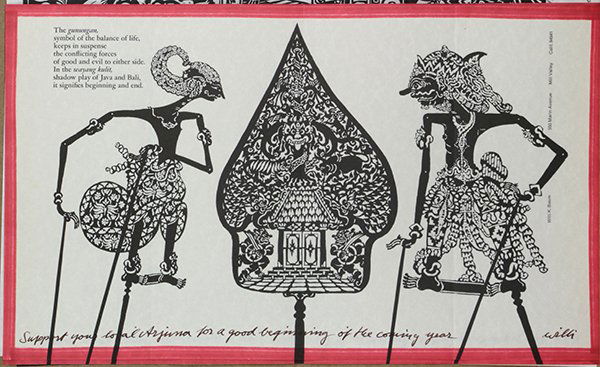 The gunungan,
symbol of the balance of life,
keeps in suspense
the conflicting forces
of good and evil to either side.
In the wayang kulit,
shadow play of Java and Bali,
it signifies beginning and end.
Willi K. Baum 550 Marin Avenue Mill Valley Calif. 94941
Support your local Arjuna for a good beginning of the coming year
willi